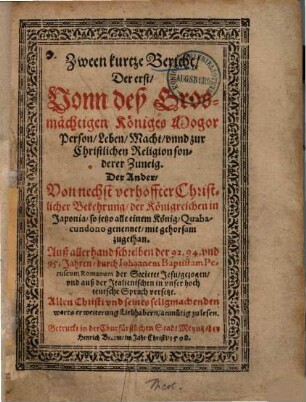 Zween kurtze Bericht/
Der erst/
Vonn deß Gros-
mächtigen Königes Mogor
Person/ Leben/ Macht/ vnnd zur
Christlichen Religion son-
derer Zuneig.
Der Ander/
Von nechst verhoffter Christ-
licher Bekehrung/ der Königreichen in
Japonia/ so jetzo alle einem König/ Quaba-
cundono genennet/ mit gehorsam
zugethan.
Auß allerhand schreiben der 92. 94. vnd
95. Jahren/ durch Iohannem Baptistam Pe-
ruscum Romanum der Societet Jesu/ gezogen/
vnd auß der Italienischen in vnser hoch
teutsche Sprach versetzt.
Allen Christi vnd seines seligmachenden
worts erweiterung Liebhabern/ anmütig zulesen.
Getruckt in der Churfürstlichen Stadt Meyntz/ bey
Henrich Breem/ im Jahr Christi/ 1598.
Theol.